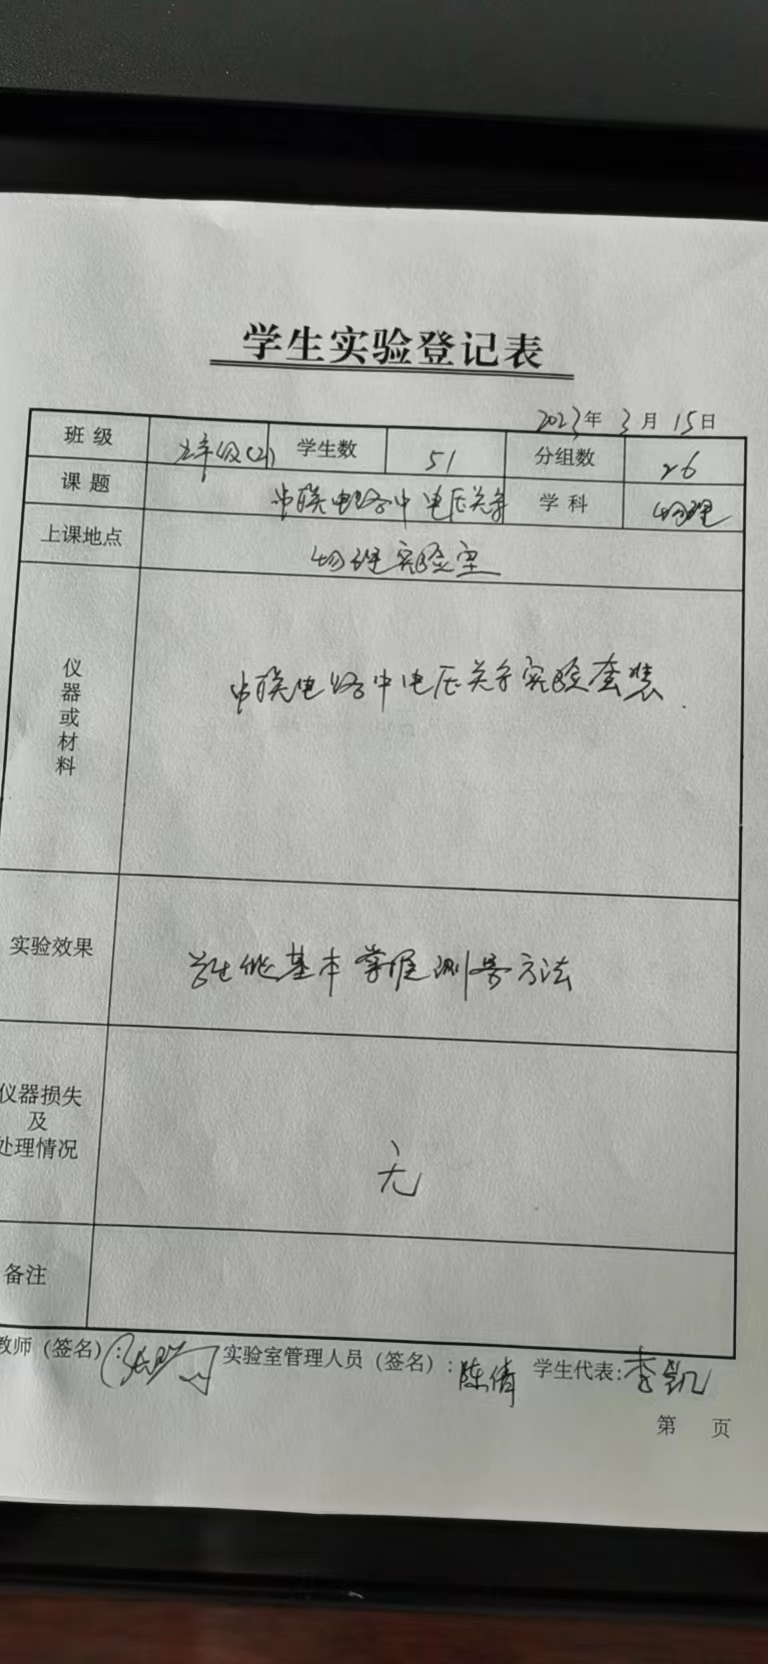 学生实验登记表
2023年 3月 15日
班级 年级(2) 学生数 51 分组数 26
课题 串联电路中电压关系 学科 物理
上课地点 物理实验室
仪器或材料 串联电路中电压关系实验套装.
实验效果 学生能基本掌握测量方法
仪器损失
及
处理情况 无
备注
教师（签名）: 实验室管理人员（签名）: 陈倩 学生代表: 李凯
第 页